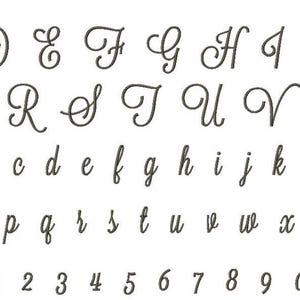 E F G H I
R S T U V
c d e f g h i j k
p q r s t u v w x
2 3 4 5 6 7 8 9